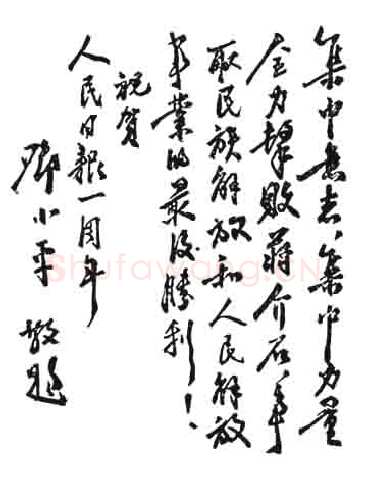 集中意志，集中力量
全力擊敗蔣介石，争
取民族解放和人民解放
事業的最後勝利！
祝賀
人民日報一周年
鄧小平 敬題
Shufawang.CN